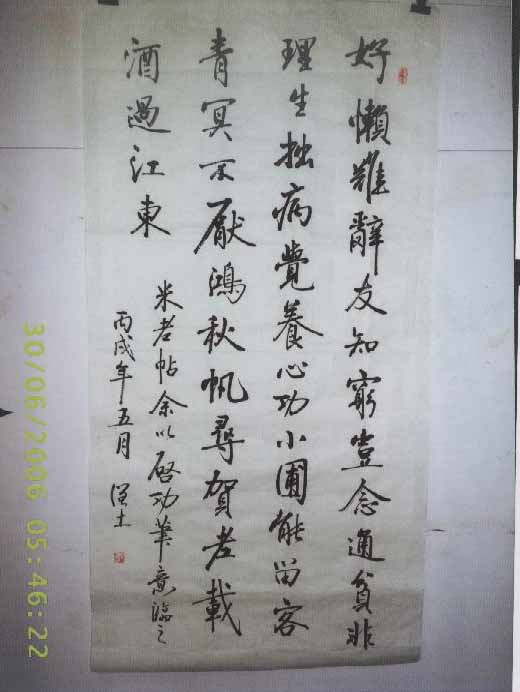 好懶難辭友知窮豈念通貧非
理生拙病覺養心功小圃能留客
青冥不厭鴻秋帆尋賀老載
酒過江東
米老帖余以啓功筆意臨之
丙戌年五月
30/06/2006 05:46:22